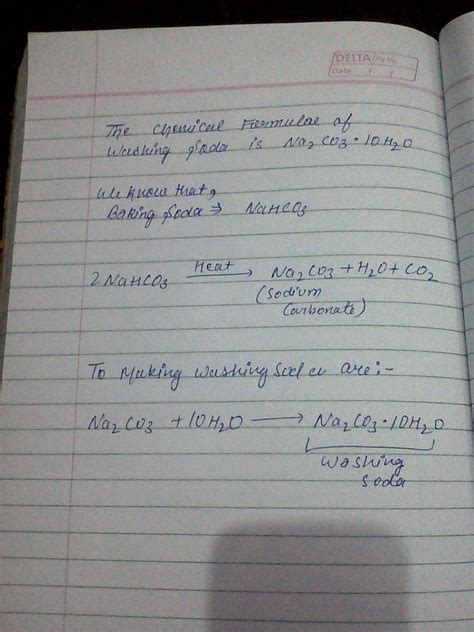 DELTA Pg No.
Date / /
The Chemical Formulae of
Washing Soda is Na2CO3·10H2O
We know that,
Baking Soda ⇒ NaHCO3
2NaHCO3 Heat → Na2CO3 + H2O + CO2
(Sodium
Carbonate)
To Making Washing Soda are:-
Na2CO3 + 10H2O → Na2CO3·10H2O
Washing
Soda